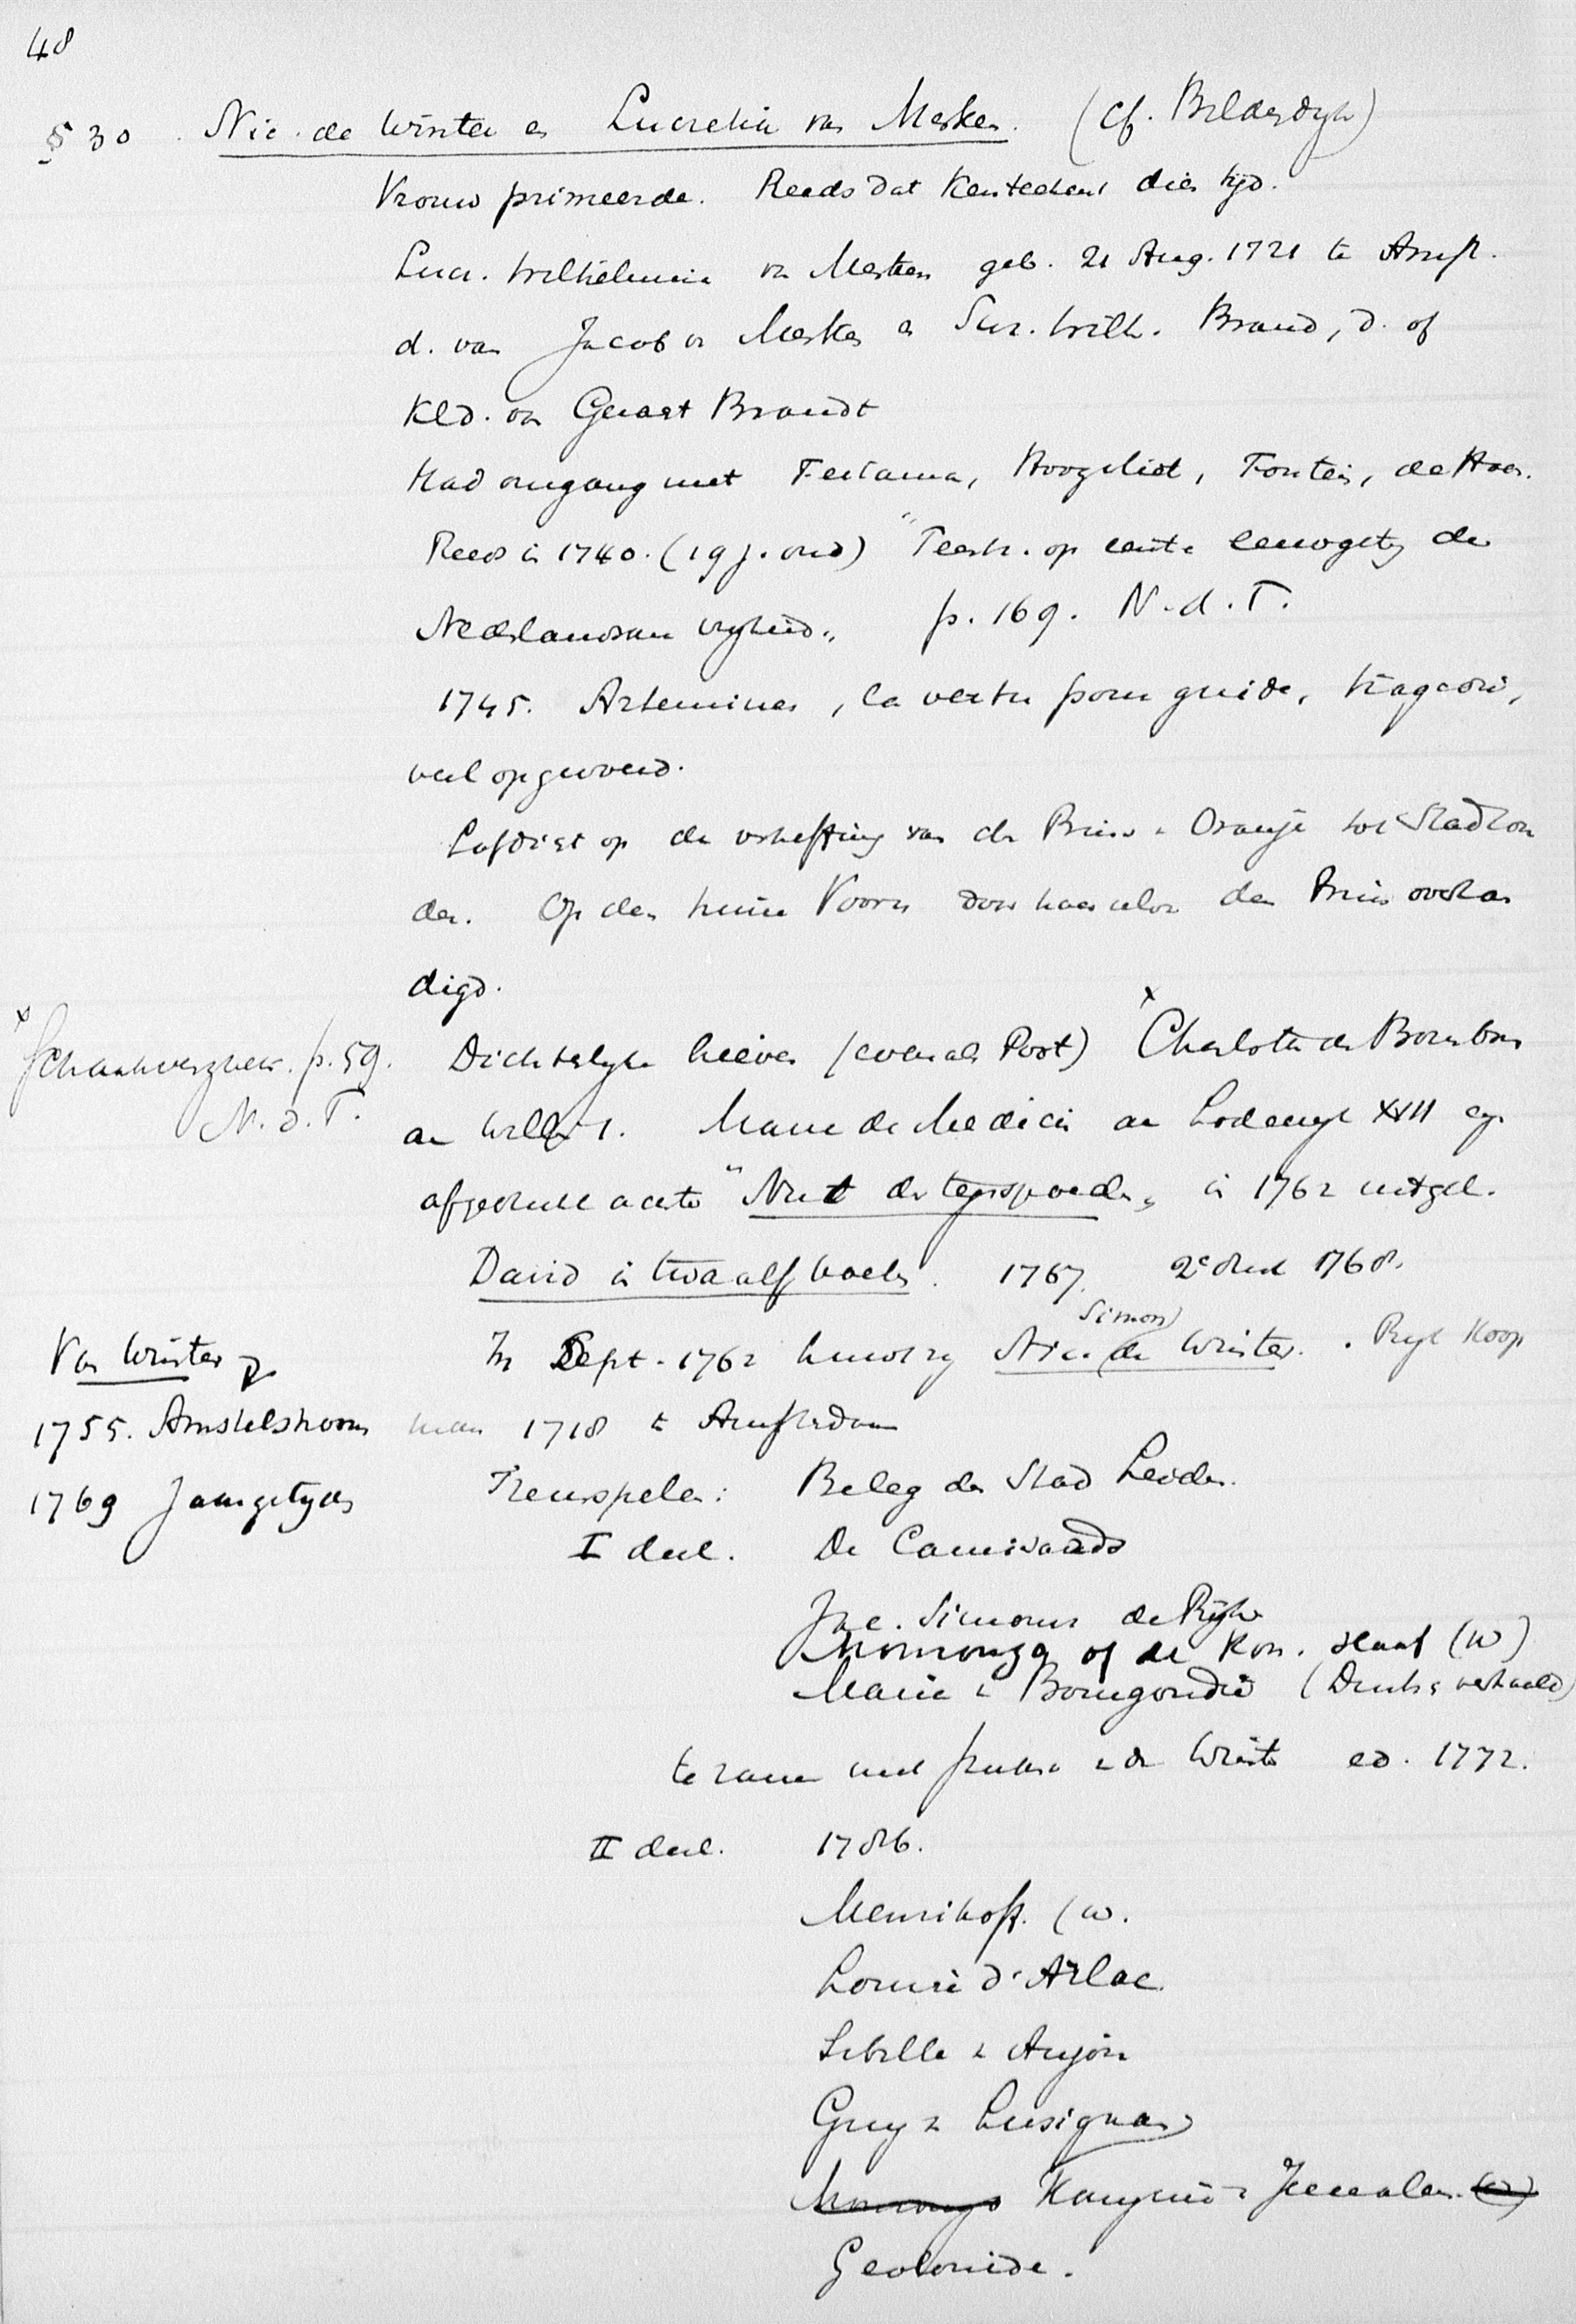 48
§ 30. Nic. de Winter en Lucretia van Merken. (Cf. Bilderdijk)
Vrouw primeerde. Reeds dat kenteekent dien tijd.
Lucr. Wilhelmina v. Merken geb. 21 Aug. 1721 te Amst.
d. van Jacob v. Merken en Sus. Wilh. Brand, d. of
kld. van Geraert Brandt
Had omgang met Feitama, Hoogvliet, Fontein, de Haes.
Reeds in 1740. (19 j. oud) "Feestz. op eerste eeuwgetij der
Nederlandsen vrijheid„ p. 169. N.d.T.
1745. Artemines, la vertu pour guide, tragedie,
veel opgevoerd.
Lofdicht op de verheffing van den Prins v. Oranje tot Stadhou
der. Op den huize Voorn door haar zelve den Prins overhan
digd.
x Schank p. 59.
N.d.T.
Dichtelijke brieven (evenals Poot) x Charlotte de Bourbon
aan Willem I. Marie de Medicis aan Lodewijk XIII
afgedrukt achter "Nut der tegenspoeden„ in 1762 uitgeg.
David in twaalf boeken. 1767. 2e druk 1768.
Van Winter
1755. Amstelstroom
1769 Jaargetijden
In Sept. 1762 huwt zij Nic. Simon de Winter. Rijk Koop
man 1718 te Amsterdam
Treurspelen: Beleg der Stad Leiden.
I deel. De Camisaards
Jac. Simonsz de Rijk
Monzongo of de Kon. slaaf (W)
Maria v. Bourgondië
te zamen met van de Winter ed. 1772.
II deel. 1786.
Menzikoff. (W.
Louise d'Arlac.
Sebille v. Anjou
Guy v. Lusignan
Monzongo Jeruzalem. (W)
Gelonide.